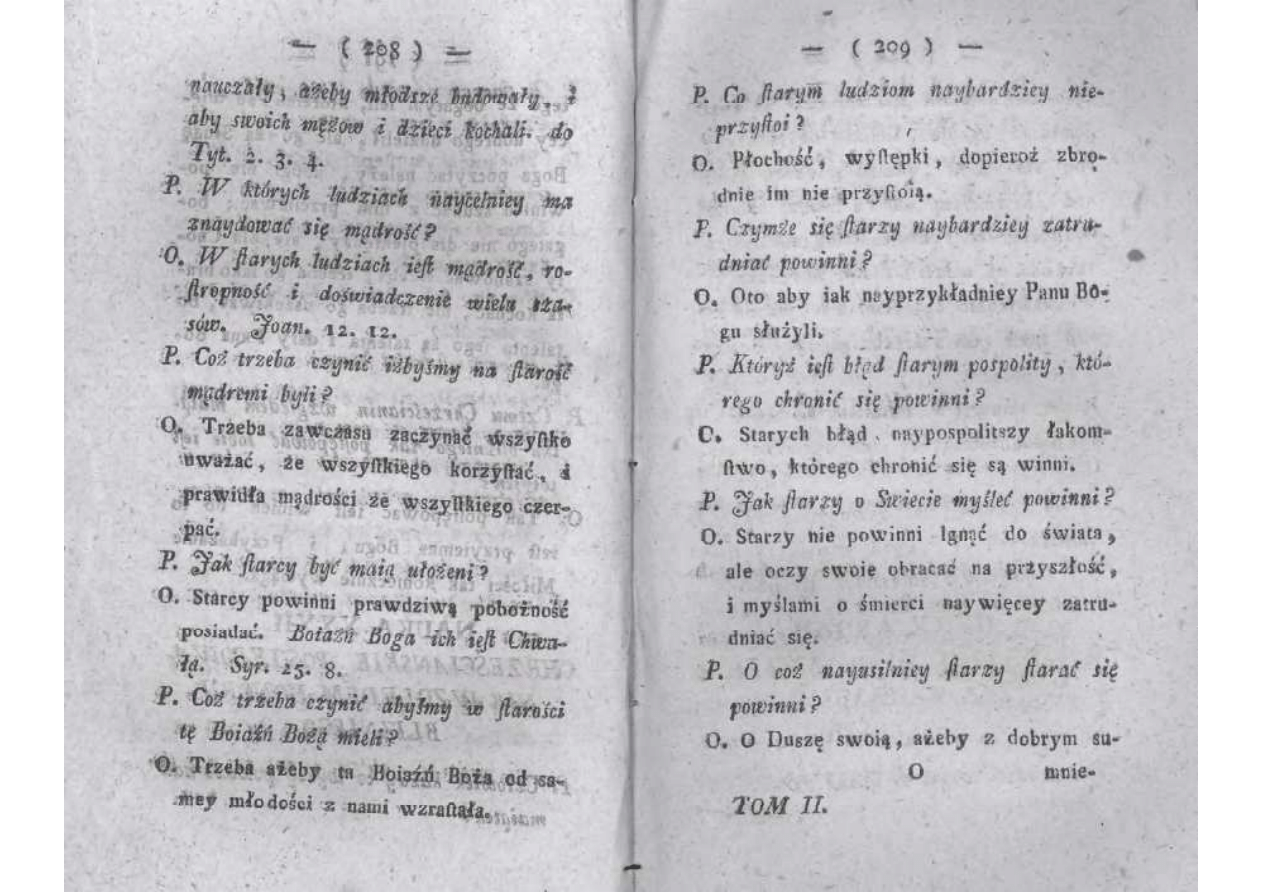 — ( 208 ) —
nauczały, ażeby młodsze budowały, i
aby swoich mężow i dzieci kochali. do
Tyt. 2. 3. 4.
P. W których ludziach naycelniey ma
znaydować się mądrość?
O. W ſtarych ludziach ieſt mądrość, ro-
ſtropność i doświadczenie wielu cza-
sów. Joan. 12. 12.
P. Coż trzeba czynić iżbyśmy na ſtarość
mądremi byli?
O. Trzeba zawczasu zaczynać wszyſtko
uważać, ze wszyſtkiego korzyſtać, i
prawidła mądrości ze wszyſtkiego czer-
pać.
P. Jak ſtarcy być maią ułożeni?
O. Starcy powinni prawdziwą pobożność
posiadać. Boiaźń Boga ich ieſt Chwa-
łą. Syr. 25. 8.
P. Coż trzeba czynić abyśmy w ſtarości
tę Boiaźń Bożą mieli?
O. Trzeba ażeby ta Boiaźń Boża od sa-
mey młodości z nami wzraſtała.
— ( 209 ) —
P. Co ſtarym ludziom naybardziey nie-
przyſtoi?
O. Płochość, wyſtępki, dopieroż zbro-
dnie im nie przyſtoią.
P. Czymże się ſtarzy naybardziey zatru-
dniać powinni?
O. Oto aby iak nayprzykładniey Panu Bo-
gu służyli.
P. Któryż ieſt błąd ſtarym pospolity, któ-
rego chronić się powinni?
O. Starych błąd naypospolitszy łakom-
ſtwo, którego chronić się są winni.
P. Jak ſtarzy o Swiecie myśleć powinni?
O. Starzy nie powinni lgnąć do świata,
ale oczy swoie obracać na przyszłość,
i myślami o śmierci naywięcey zatru-
dniać się.
P. O coż nayusilniey ſtarzy ſtarać się
powinni?
O. O Duszę swoią, ażeby z dobrym su-
O mnie-
TOM II.